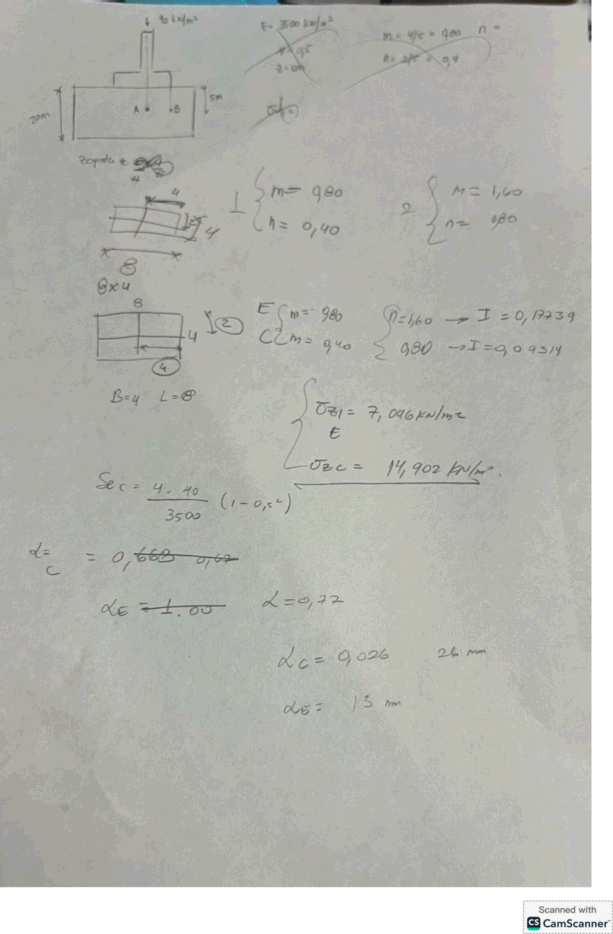 40 kN/m²
E = 3500 kN/m²
m = 4/5 = 0,80 n =
n = 2/5 = 0,4
20m
A
B
5m
Zapata
4
1 { m = 0,80
n = 0,40
2 { m = 1,60
n = 0,80
4
8
8x4
B
E { m = 0,80
C { m = 0,40
{ n = 1,60 → I = 0,17739
0,80 → I = 0,09314
2
4
4
B=4 L=8
σz1 = 7,046 kN/m2
E
σzC = 14,902 kN/m².
Sec = 4.40 / 3500 (1-0,5²)
α=
C = 0,668 0,62
αE = 1.00 α=0,77
αC = 0,026 26 mm
αE = 13 mm
Scanned with
CS CamScanner